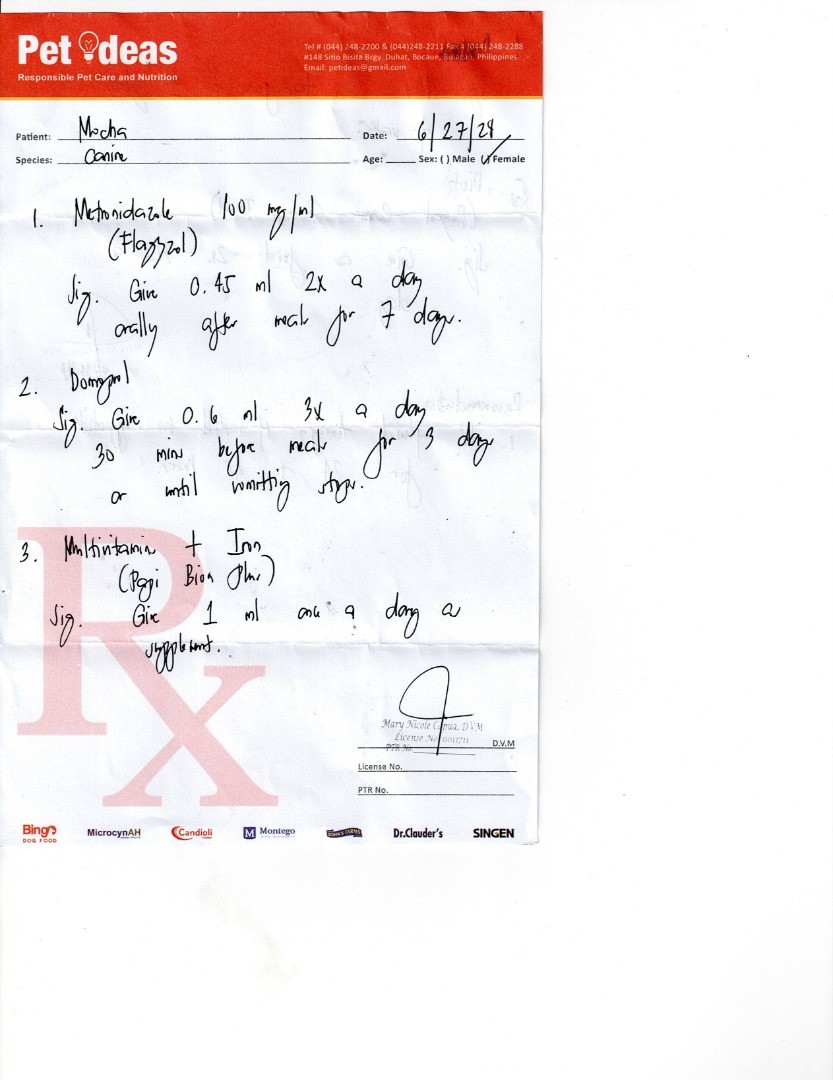 Pet Ideas
Responsible Pet Care and Nutrition
Tel # (044) 248-2200 & (044)248-2211 Fax # (044) 248-2288
#148 Sitio Bisita Brgy. Duhat, Bocaue, Bulacan, Philippines
Email: petideas@gmail.com
Patient: Mocha Date: 6/27/24
Species: Canine Age: Sex: ( ) Male (/) Female
1. Metronidazole 100 mg/ml
(Flagyzol)
Sig. Give 0.45 ml 2x a day
orally after meals for 7 days.
2. Domeprol
Sig. Give 0.6 ml 3x a day
30 mins before meals for 3 days
or until vomitting stops.
3. Multivitamin + Iron
(Papi Bion Plus)
Sig. Give 1 ml once a day as
supplement.
Rx
Mary Nicole Capua, D.V.M
License No. 0011711
PTR No. D.V.M
License No.
PTR No.
Bingo DOG FOOD MicrocynAH Candioli M Montego Dr.Clauder's SINGEN